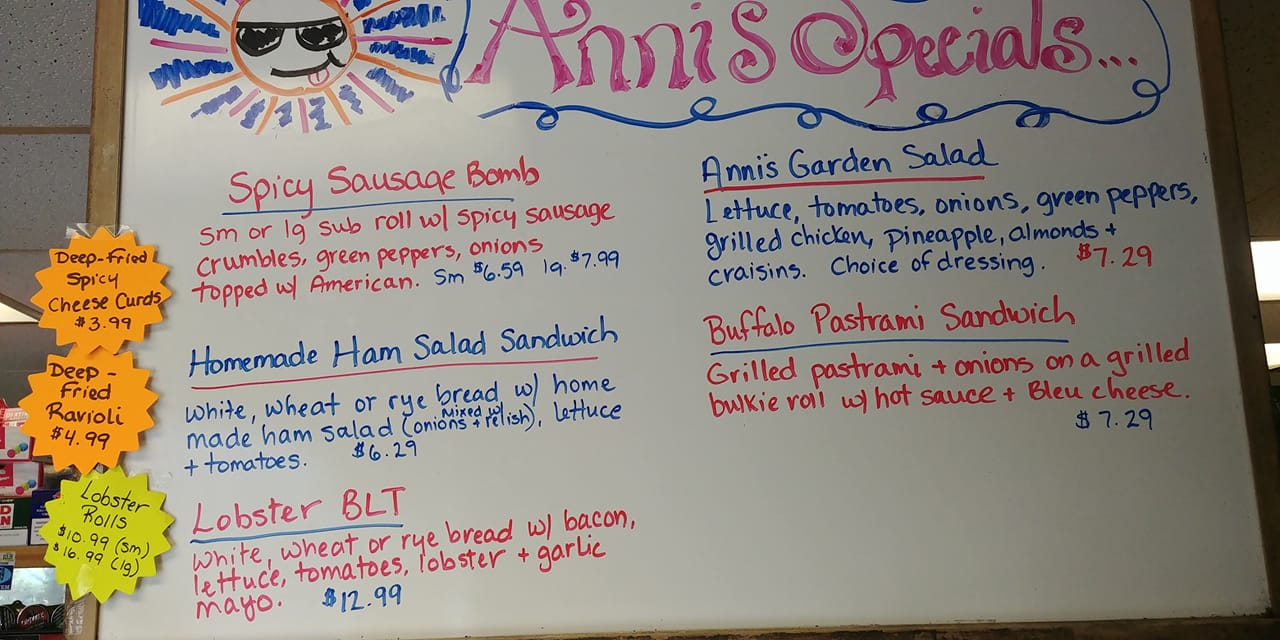 Anni's Specials...
Spicy Sausage Bomb
Sm or lg sub roll w/ spicy sausage
crumbles, green peppers, onions
topped w/ American. Sm $6.59 lg. $7.99
Homemade Ham Salad Sandwich
White, wheat or rye bread w/ home
made ham salad (mixed w/ onions + relish), lettuce
+ tomatoes. $6.29
Lobster BLT
White, wheat or rye bread w/ bacon,
lettuce, tomatoes, lobster + garlic
mayo. $12.99
Anni's Garden Salad
Lettuce, tomatoes, onions, green peppers,
grilled chicken, pineapple, almonds +
craisins. Choice of dressing. $7.29
Buffalo Pastrami Sandwich
Grilled pastrami + onions on a grilled
bulkie roll w/ hot sauce + Bleu cheese.
$7.29
Deep-Fried
Spicy
Cheese Curds
$3.99
Deep-
Fried
Ravioli
$4.99
Lobster
Rolls
$10.99 (sm)
$16.99 (lg)